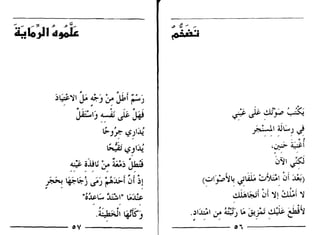 تضخُّم
يكتب صوتك على غيبي
في رسالة المستجر
أغنية حنين،
لكنّي الآن
(بعد أن امتلأت ملفاتي بالأصوات)
لا أملك إلا أن أتجاهلك
لأقطع عليك تمزيق ما رتّبته من امتداد.
٥٦
علَّموه الرِّماية
رسم أطلَّ من وجه ملَّ الاعتياد
فهل على نفسه واستقلّ
يداوي جروحًا
يداوي تقيُّحًا
فتطلّ دمعة من نافذة عينه
إذ أن أحدهم رمى زجاجها بحجر
عندما "اشتدّ ساعده"
وكأنها الخطيئة.
٥٧